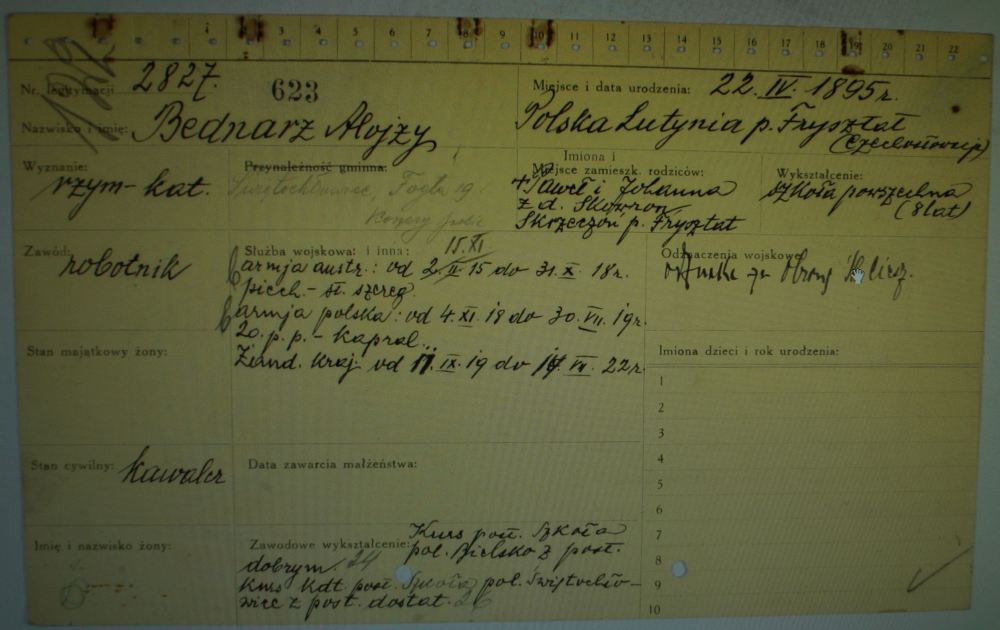 1 3 4 5 6 7 8 9 10 11 12 13 14 15 16 17 18 19 20 21 22
Nr. legitymacji 2827.
623
Miejsce i data urodzenia: 22. IV. 1895 r.
Polska Lutynia p. Frysztat
Nazwisko i imię: Bednarz Alojzy
Wyznanie:
rzym-kat.
Przynależność gminna:
Świętochłowice,
Imiona i
Miejsce zamieszk. rodziców:
+ Paweł i Johanna
z d. Skowron
Skrzeczoń p. Frysztat
Wykształcenie:
szkoła powszechna
(8 lat)
Zawód:
robotnik
Służba wojskowa: i inna: 15. XI
armja austr.: od 2. II. 15 do 31. X. 18 r.
piech. - st. szereg.
armja polska: od 4. XI. 18 do 30. VII. 19 r.
20. p. p. - kapral.
Żand. Kraj. od 11. IX. 19 do VII. 22 r.
Odznaczenia wojskowe
odznaka za Obronę
Stan majątkowy żony:
Imiona dzieci i rok urodzenia:
1
2
3
4
5
6
7
8
9
10
Stan cywilny: kawaler
Data zawarcia małżeństwa:
Imię i nazwisko żony:
Zawodowe wykształcenie: Kurs post. Szkoła
pol. Bielsko z post.
dobrym. 24
Kurs Kdt. post. Szkoła pol. Świętochło-
wice z post. dostat. 26